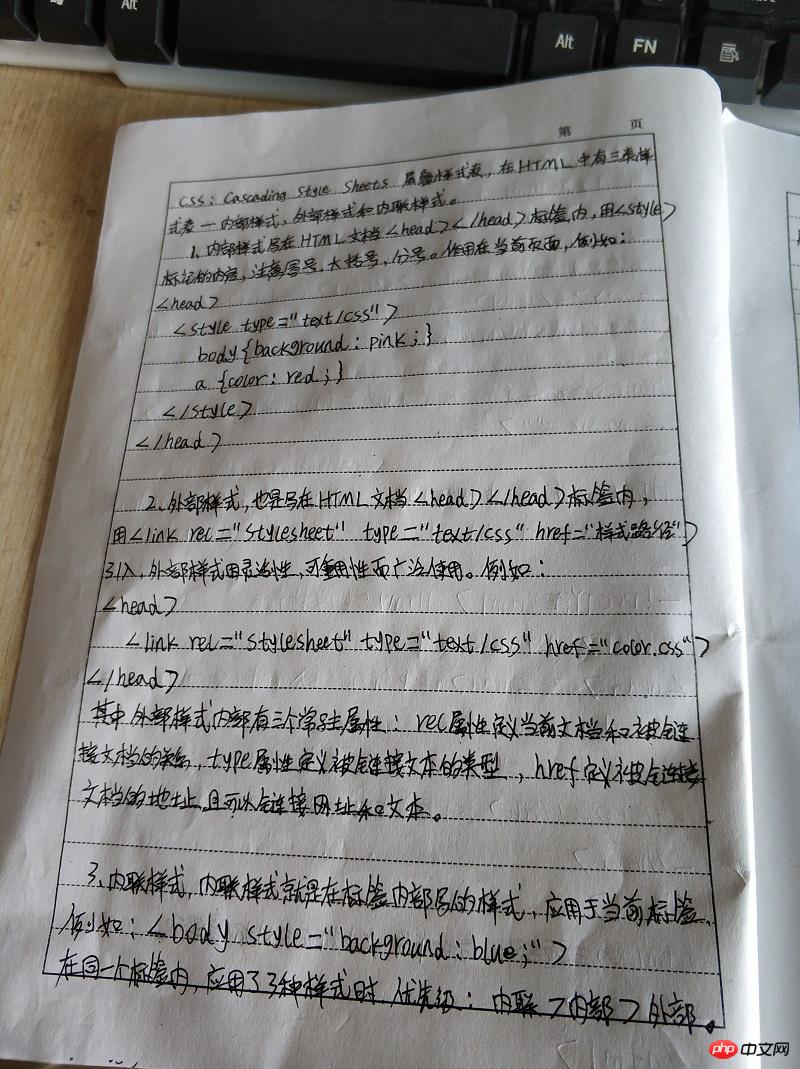 Alt
Alt
FN
第 页
CSS: Cascading Style Sheets 层叠样式表, 在HTML中有三类样
式表 — 内部样式、外部样式和内联样式。
1、内部样式写在HTML文档<head></head>标签内, 用<style>
标记的内容, 注意冒号, 大括号, 分号。作用在当前页面, 例如:
<head>
<style type="text/css">
body {background: pink;}
a {color: red;}
</style>
</head>
2、外部样式, 也是写在HTML文档<head></head>标签内,
用<link rel="stylesheet" type="text/css" href="样式路径">
引入, 外部样式因灵活性, 可重用性而广泛使用。例如:
<head>
<link rel="stylesheet" type="text/css" href="color.css">
</head>
其中外部样式内部有三个常写属性: rel属性定义当前文档和被链
接文档的关系, type属性定义被链接文本的类型, href定义被链接
文档的地址, 且可以链接网址和文本。
3、内联样式, 内联样式就是在标签内部写的样式, 应用于当前标签.
例如: <body style="background: blue;">
在同一个标签内, 应用了3种样式时, 优先级: 内联>内部>外部。
php 中文网